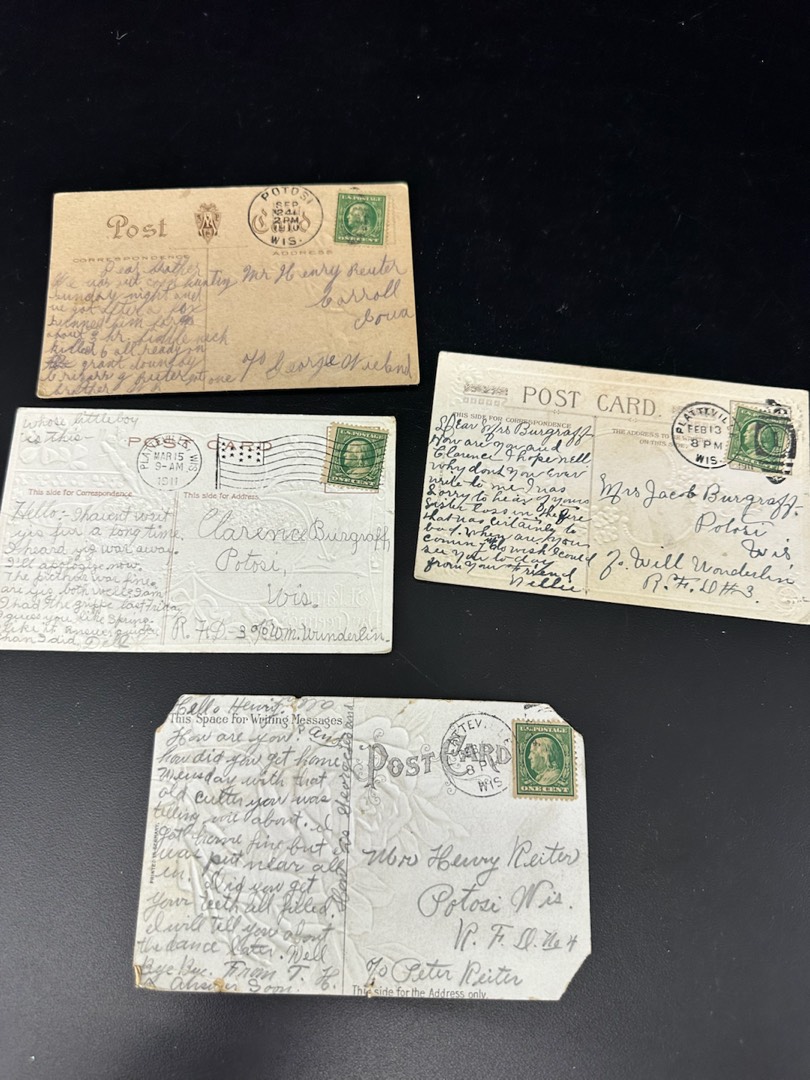 Post Card
POTOSI
SEP
24
2 PM
1910
WIS.
U.S. POSTAGE
ONE CENT
CORRESPONDENCE
ADDRESS
Dear Brother
We was out coon hunting
Sunday night and
we got after a
him for
about 3 hr.
killed 6 all ready in
grant county
brother
Mr Henry Reuter
Carroll
Iowa
% George Wieland
POST CARD
whose little boy
is this
PLATTEVILLE WIS
MAR 15
9-AM
1911
U.S. POSTAGE
This side for Correspondence
This side for Address
Hello:- I haven't
yes for a long time
I heard yig war away.
I'll apologise now.
The pictures war fine.
are yig both well? I am
I had the grippe last
I guess you like Spring.
like it
than I did, Dell
Clarence Burgraff,
Potosi,
Wis.
R. F. D.-3 % Wm. Wunderlin.
POST CARD.
PLATTEVILLE
FEB 13
8 PM
WIS.
THIS SIDE FOR CORRESPONDENCE
THE ADDRESS TO BE
ON THIS
Dear Mrs Burgraff-
How are you and
Clarence, I hope well
why dont you ever
write to me I was
Sorry to hear of your
Sister loss in the fire
that was certainly to
bad. When are you
coming to wish I could
see you to day
from Your Friend
Nellie.
Mrs Jacob Burgraff-
Potosi
Wis
% Will Wonderlin
R. F. D # 3.
Hello Henry
This Space for Writing Messages
How are you? and
how did you get home
Wensday with that
old cutter you was
telling me about. I
got home fine but I
was put near all
in. Did you get
your teeth all filled.
I will tell you about
the dance later. Well
Bye Bye. From T. H.
Answer Soon.
POST CARD
PLATTEVILLE
8 PM
WIS
U.S. POSTAGE
ONE CENT
Mr Henry Reiter
Potosi Wis.
R. F. D. No 4
% Peter Reiter
This side for the Address only.